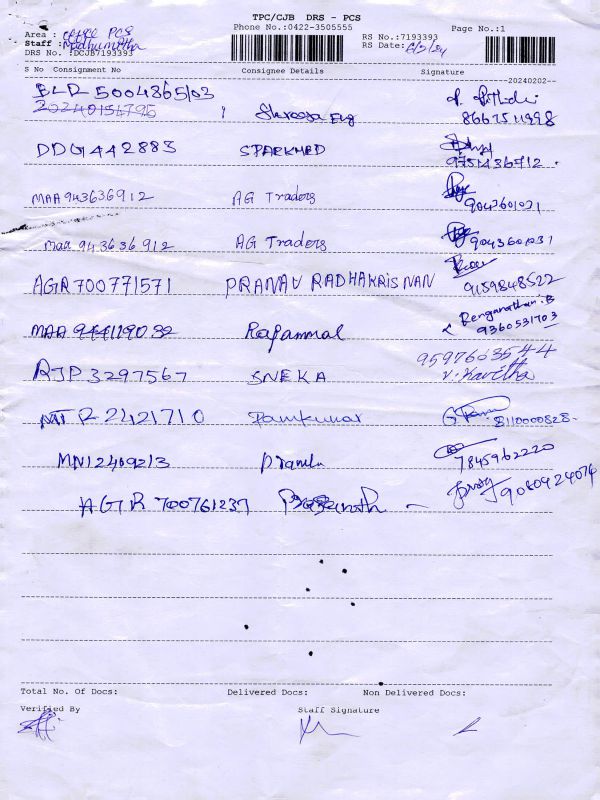 TPC/CJB DRS - PCS
Area : office PCS Phone No.:0422-3505555 Page No.:1
Staff : Madhumitha RS No.:7193393
DRS No. :DCJB7193393 RS Date: 6/2/24
S No Consignment No Consignee Details Signature
20240202
BLR 5004865103
20240156795 Shreeja Eng 8667511998
DDG442883 SPARKMED 9751436712
MAA 943636912 AG Traders 9043601031
MAA 943636912 AG Traders 9043601031
AGR700771571 PRANAV RADHAKRISNAN 9159848522
MAA 944119032 Rajammal Renganathan.B 9360531703
AJP3297567 SNEKA 9597603544 V. Kavitha
R2421710 Ramkumar 8110000828
MN12409213 Pramila 7845962220
AGR 700761237 9080924074
Total No. Of Docs: Delivered Docs: Non Delivered Docs:
Verified By Staff Signature